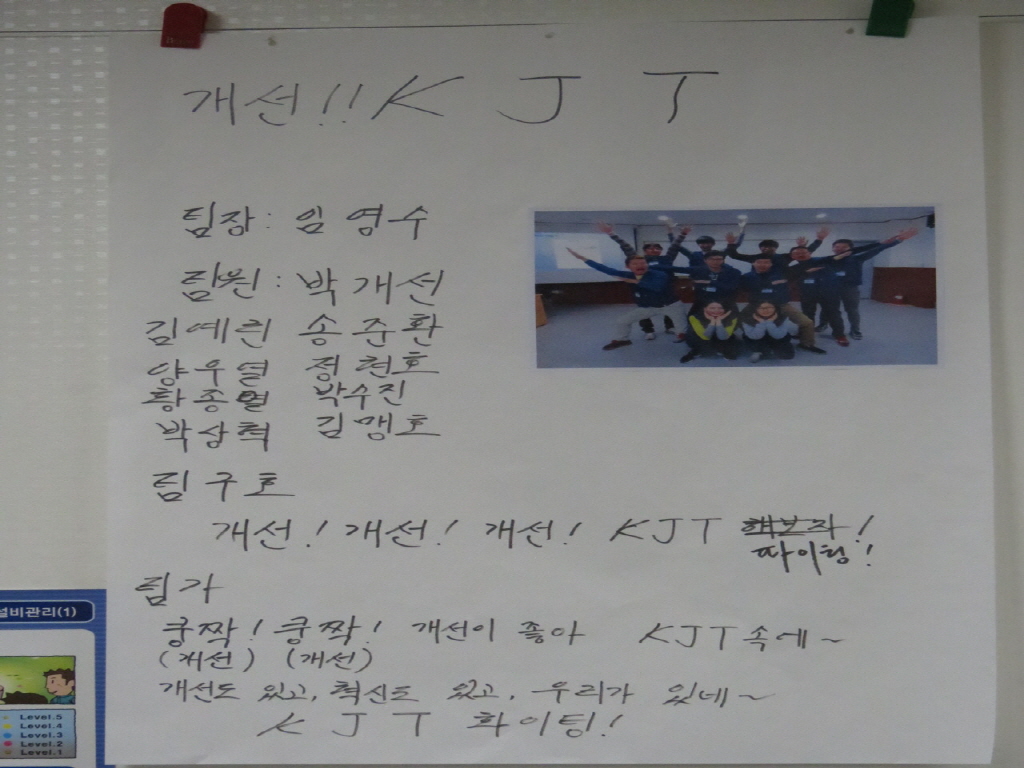 개선!! K J T
팀장: 임영수
팀원: 박개선
김예린 송준환
양우열 정현호
황종열 박수진
박상혁 김맹호
팀구호
개선! 개선! 개선! KJT 해보자!
파이팅!
팀가
쿵짝! 쿵짝! 개선이 좋아 KJT속에~
(개선) (개선)
개선도 있고, 혁신도 있고, 우리가 있네~
K J T 화이팅!
설비관리(1)
Level.5
Level.4
Level.3
Level.2
Level.1